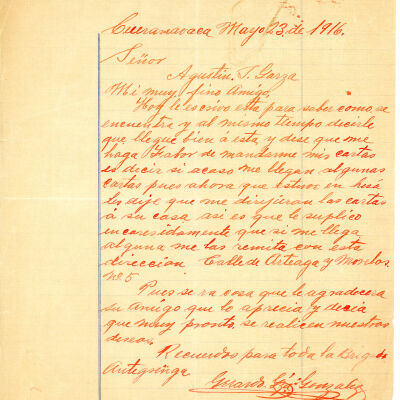 Cuernavaca Mayo 23, de 1916.
Señor
Agustin. S. Garza
Mi muy fino Amigo.
Hoy le escrivo esta para saber como, se
encuentra y al mismo tiempo decirle
que llegué bién á esta, y dise que me
haga Fabor de mandarme mis cartas
es decir si acaso me llegan, algunas
cartas pues ahora que estuve en
les dije que me dirijieran las cartas
á su casa asi es que le suplico
encaresidamente que si me llega
alguna me las remita con esta
direccion. Calle de Arteaga y Morelos
No. 5
Pues se ra cosa que le agradecera
su Amigo que lo aprecia y decia
que muy pronto, se realicen nuestros
deseos.
Recuerdos para toda la
Gonzalez